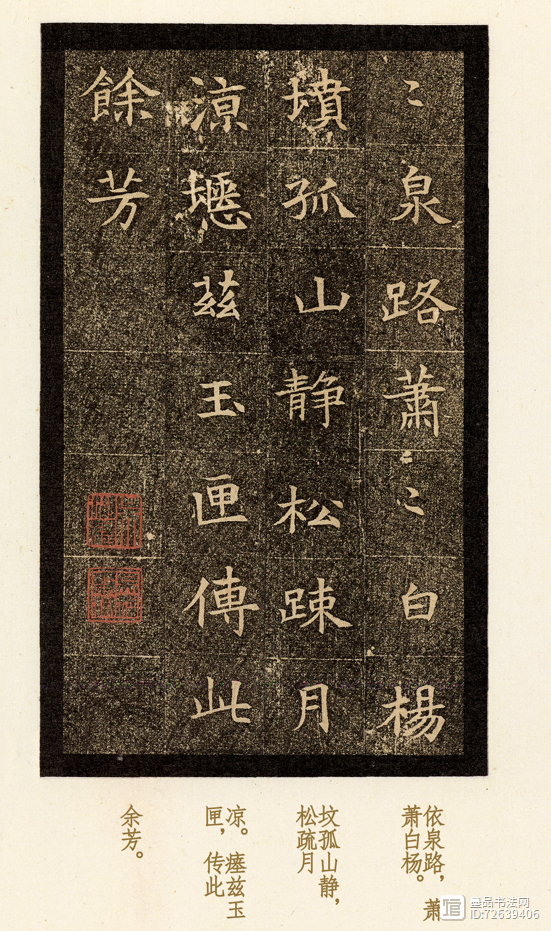 〻泉路蕭〻白楊
墳孤山静松踈月
涼瘱茲玉匣傳此
餘芳
依泉路，萧
萧白杨。
坟孤山静，
松疏月
凉。瘗兹玉
匣，传此
余芳。
墨品书法网
ID:72639406